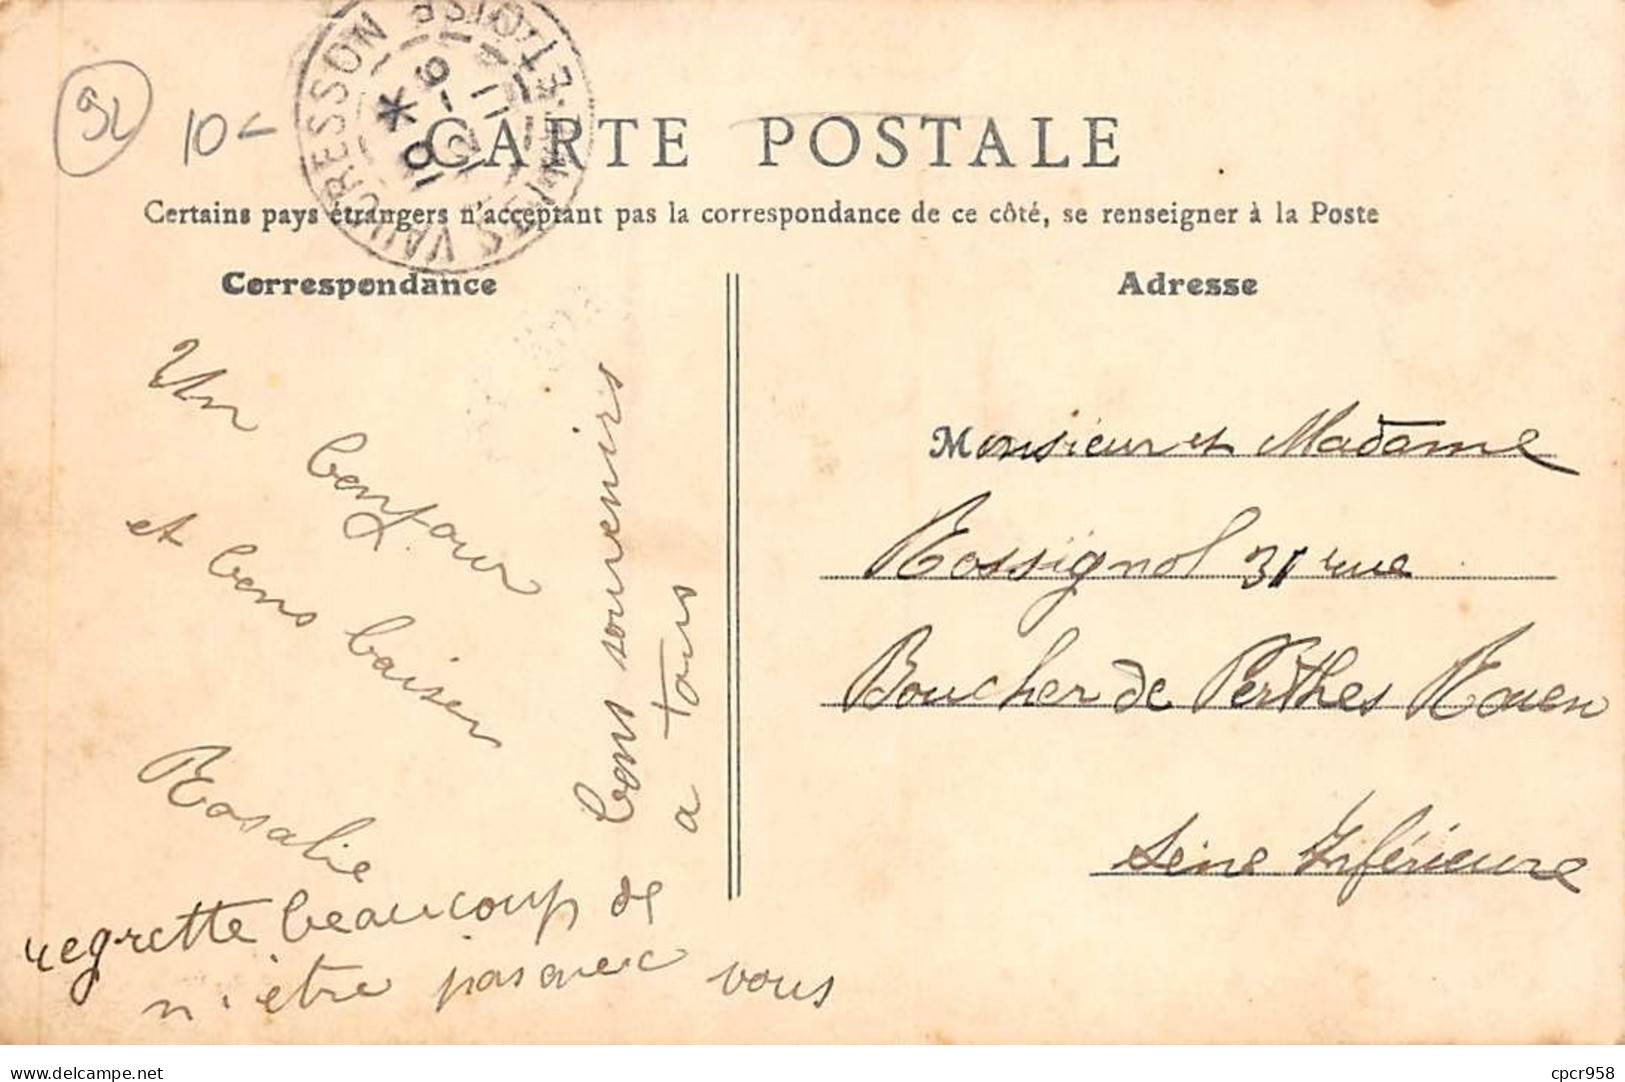 92
10-
VAUCRESSON
SEINE-ET-OISE
CARTE POSTALE
Certains pays étrangers n'acceptant pas la correspondance de ce côté, se renseigner à la Poste
Correspondance
Un bonjour
et bons baiser
Rosalie
regrette beaucoup de
n'être pas avec vous
bons souvenirs
a tous
Adresse
Monsieur et Madame
Rossignol 31 rue
Boucher de Perthes Rouen
Seine Inférieure
delcampe.net
cpcr958